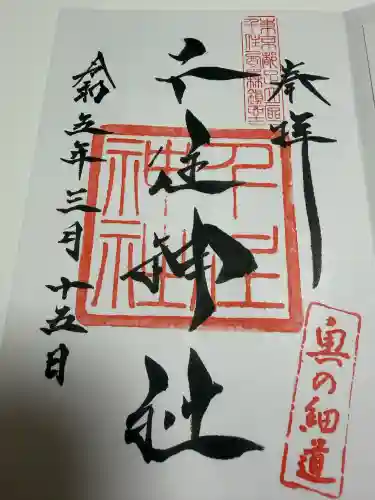 奉拝
千住神社
令和五年三月十五日
千住神社
奥の細道